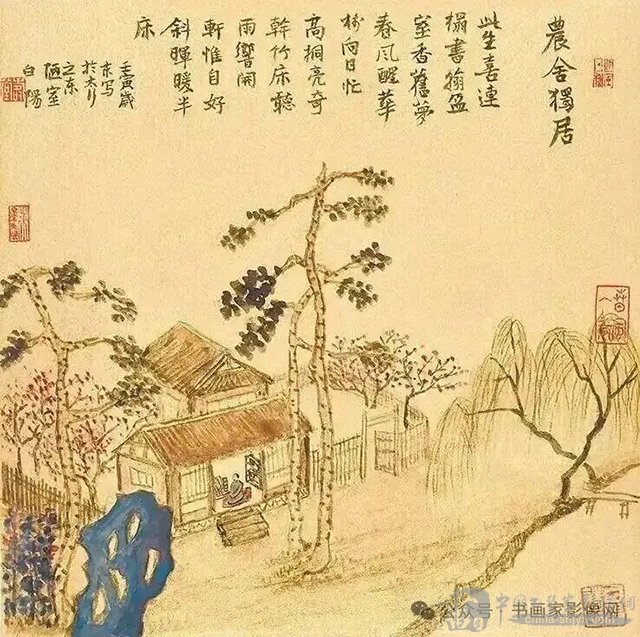 農舍獨居
此生喜連
榻書翰盈
室香舊夢
春風醒華
樹向日忙
高桐亮奇
幹竹床聽
雨響閑
軒惟自好
斜暉暖半
床
壬寅歲
末写
於太行
之东
陋室
白陽
公众号 · 书画家影像网